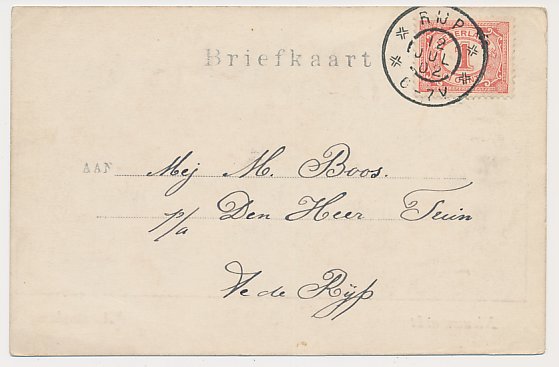 RIJP
12
JUL
02
6-7V
NEDERLAND
1
Briefkaart
AAN Mej M. Boos.
p/a Den Heer Tuin
Te de Rÿp